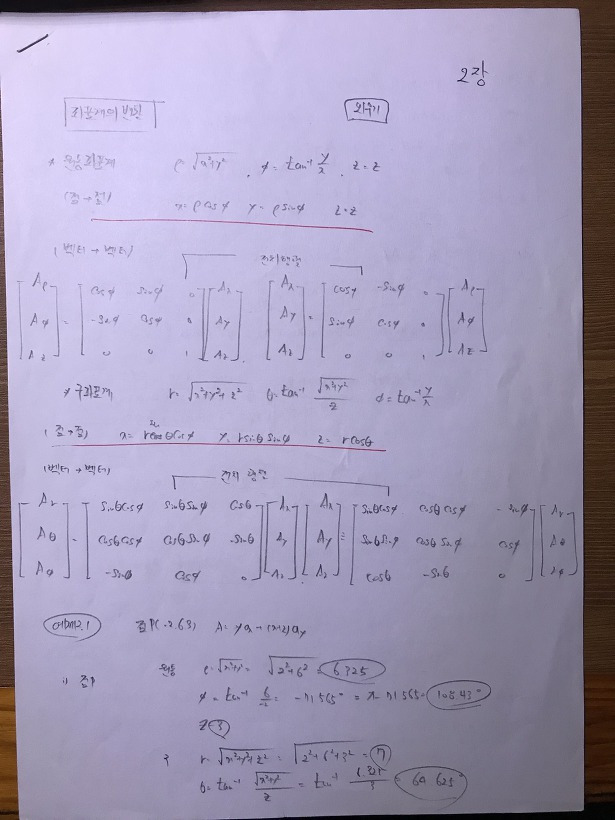 2장
좌표계의 변환 외우기
* 원통좌표계 ρ = √x²+y² , φ = tan⁻¹ y/x , z = z
(점→점) x = ρcosφ y = ρsinφ z = z
(벡터→벡터) 전치행렬
[Aρ Aφ Az] = [cosφ sinφ 0 -sinφ cosφ 0 0 0 1] [Ax Ay Az] [Ax Ay Az] = [cosφ -sinφ 0 sinφ cosφ 0 0 0 1] [Aρ Aφ Az]
* 구좌표계 r = √x²+y²+z² θ = tan⁻¹ √x²+y²/z φ = tan⁻¹ y/x
(점→점) x = rsinθcosφ y = rsinθsinφ z = rcosθ
(벡터→벡터) 전치 행렬
[Ar Aθ Aφ] = [sinθcosφ sinθsinφ cosθ cosθcosφ cosθsinφ -sinθ -sinφ cosφ 0] [Ax Ay Az] [Ax Ay Az] = [sinθcosφ cosθcosφ -sinφ sinθsinφ cosθsinφ cosφ cosθ -sinθ 0] [Ar Aθ Aφ]
예제2.1 점P(-2.6.3) A = yax+(x+z)ay
i) 점P 원통 ρ = √x²+y² = √2²+6² = 6.325
φ = tan⁻¹ 6/-2 = -71.565° = π-71.565 = 108.43°
z = 3
구 r = √x²+y²+z² = √2²+6²+3² = 7
θ = tan⁻¹ √x²+y²/z = tan⁻¹ 6.325/3 = 64.625°